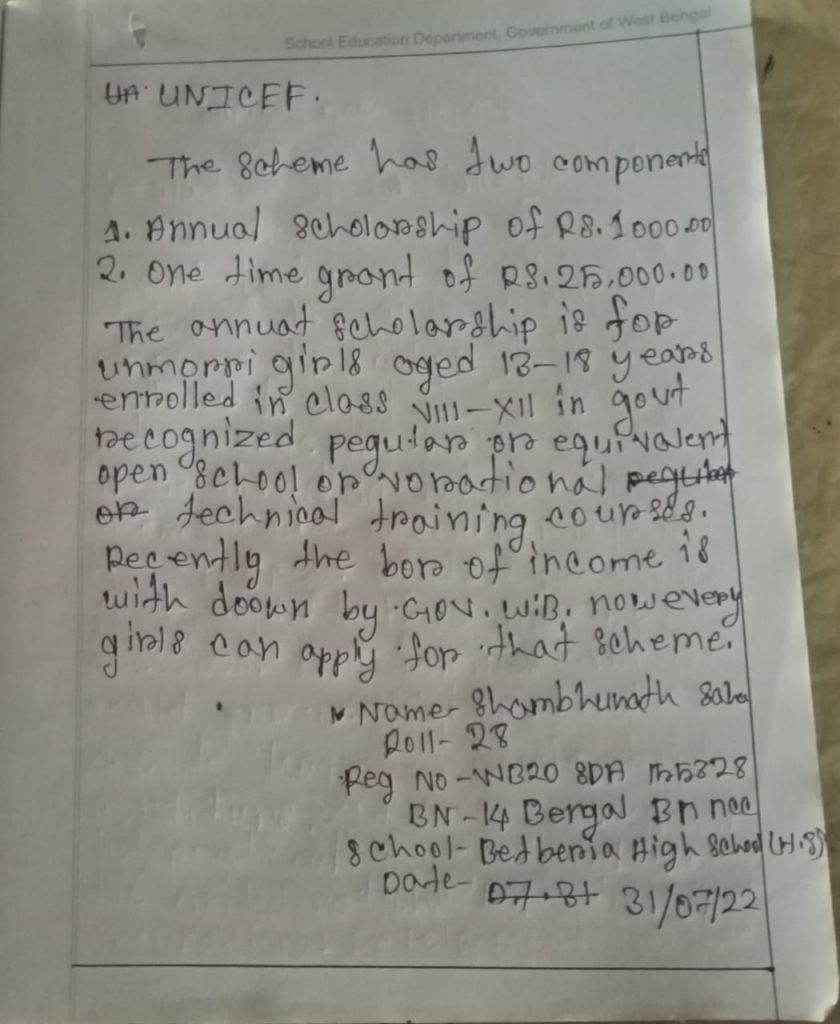 School Education Department, Government of West Bengal
UNICEF.
The scheme has two components
1. Annual scholarship of RS. 1000.00
2. one time grant of RS. 25,000.00
The annuat scholarship is for
unmorri girls aged 13-18 years
enrolled in class VIII-XII in govt
recognized pegular or equivalent
open school or vorational pegular
or technical training courses.
Recently the bor of income is
with doown by Gov. W.B. now every
girls can apply for that scheme.
Name- Shambhunath Saha
Roll- 28
Reg No-WB20 SDA 155328
BN-14 Bergal Bn ncc
School- Betberia High School (H.S)
Date- 07.31 31/07/22